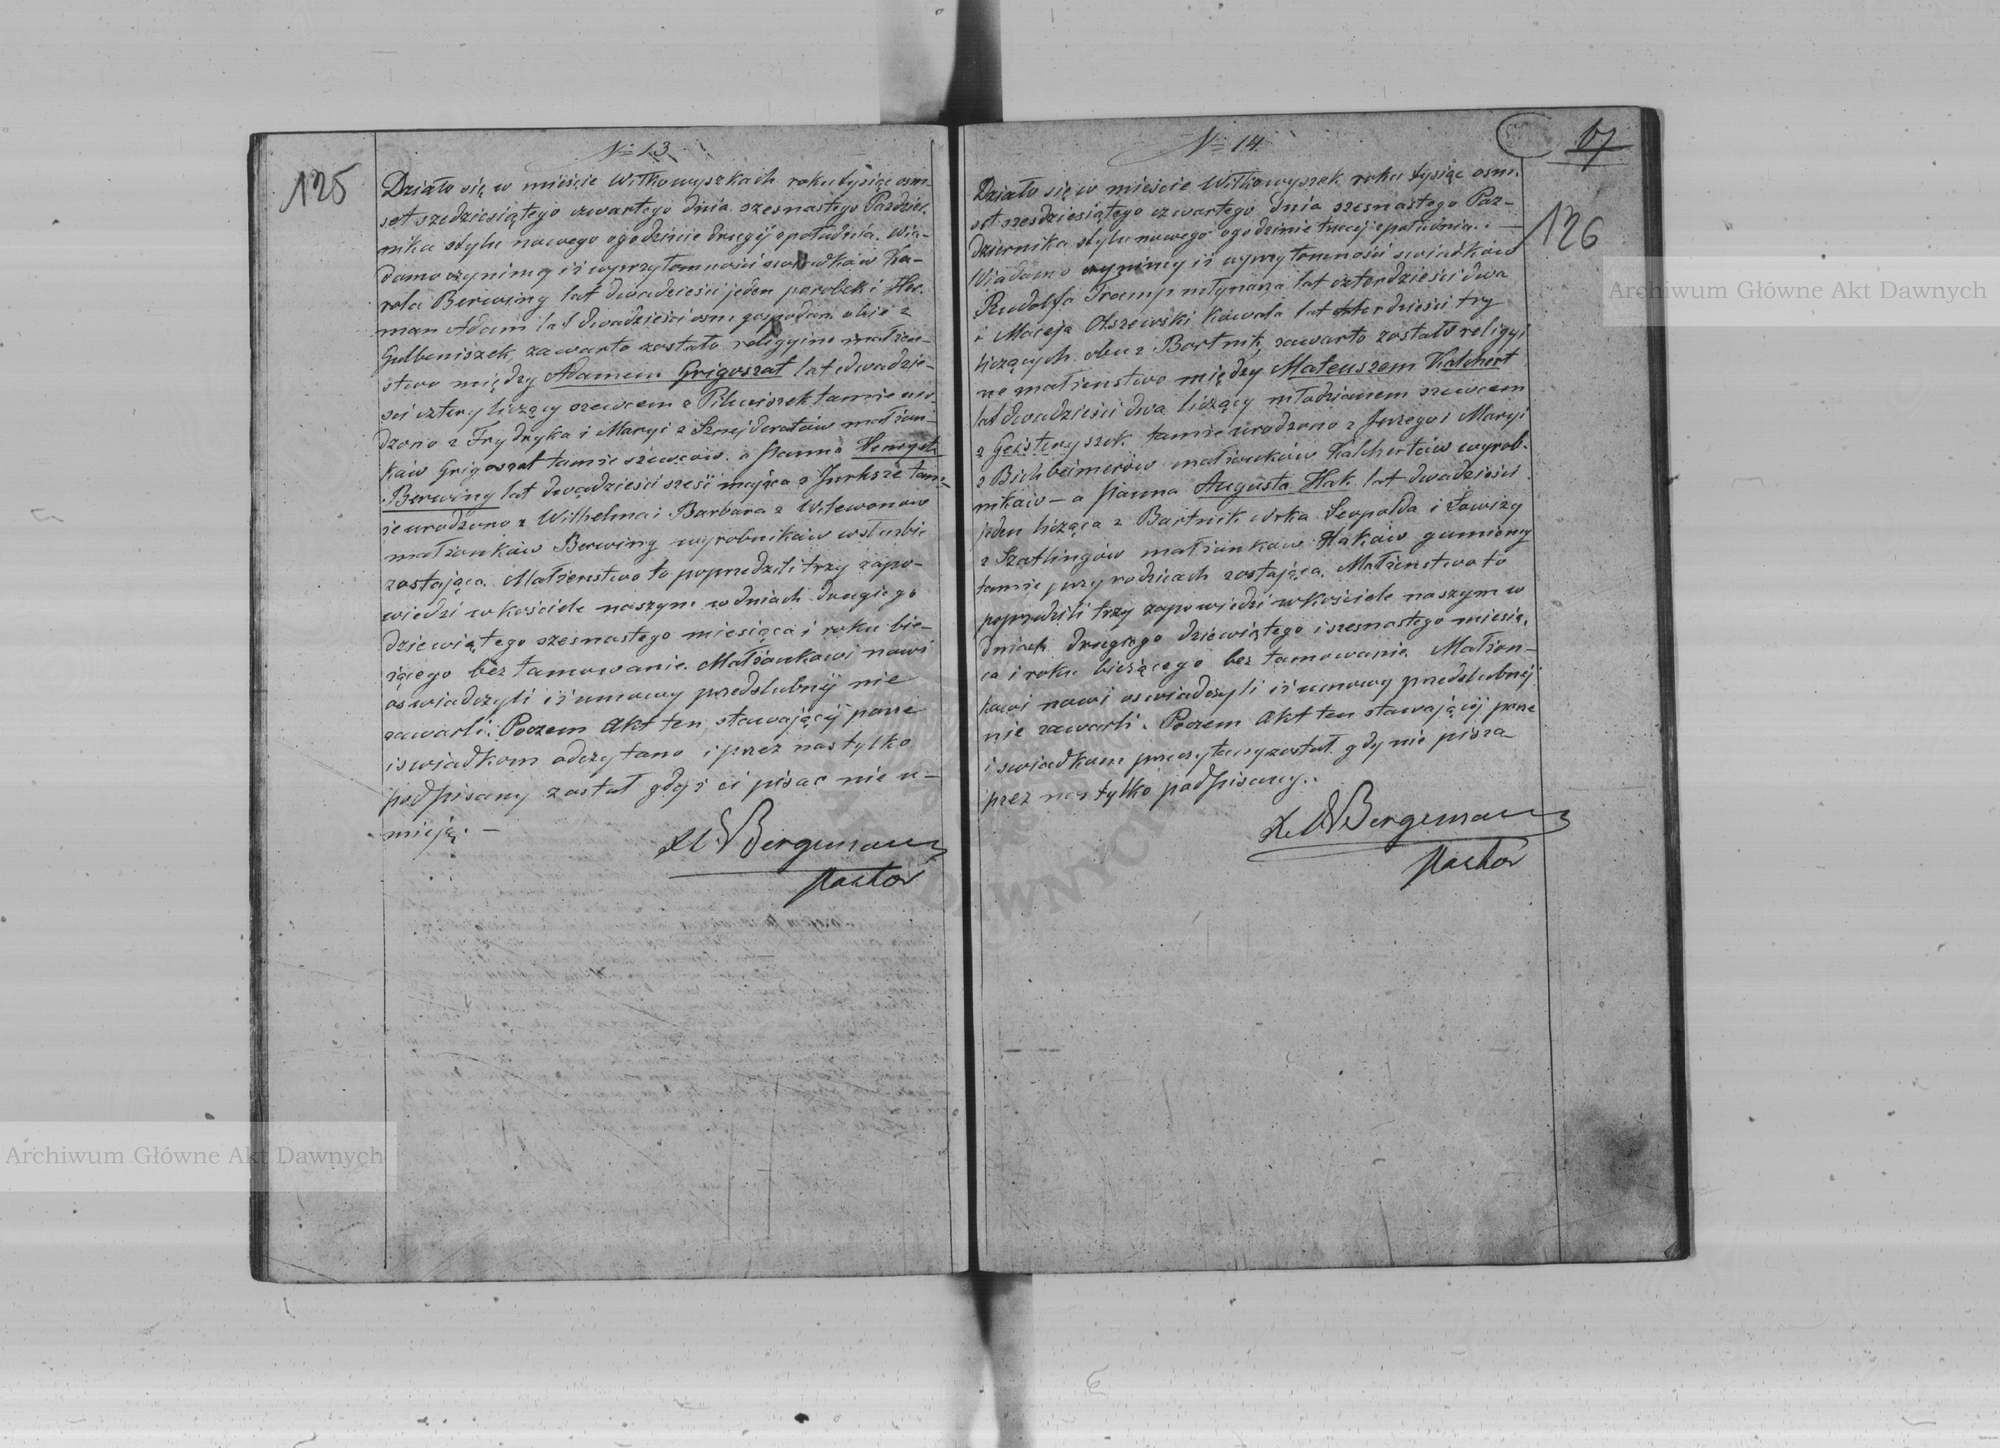 125
№ 13
Działo się w mieście Wiłkowyszkach roku tysiąc osm-
set szedziesiątego czwartego dnia szesnastego Paździer-
nika stylu nowego o godzinie drugij z południa. Wia-
domo czynimy iż w przytomności swiadków Ka-
rola Berwing lat dwadzieści jeden parobek i Her-
man Adam lat dwadzieści osm gospodarz obis z
Gulbeniszek, zawarto zostało religijne małżen-
stwo między Adamem Grigoszat lat dwadzie-
sci cztery liczący szewcem z Pilwiszek tamże uro-
dzono z Frydryka i Maryi z Sznejderatów małżon-
ków Grigoszat tamże szewców. a Panna Henryeta
Berwing lat dwadzieści sześć mająca z Jurksze tam-
że urodzono z Wilhelma i Barbara z Witewonow
małżonków Berwing wyrobników w służbie
zostająca. Małżenstwo to poprzedzili trzy zapo-
wiedzi w kościele naszym w dniach drugiego
dziewiątego szesnastego miesiąca i roku bie-
żącego bez tamowanie. Małżonkowi nowi
oswiadczyli iż umowy przedslubnij nie
zawarli. Poczem akt ten stawającij parze
i swiadkom odczytano i przez nas tylko
podpisany został gdyż ci pisac nie u-
mieją. —
Bergemann
Pastor
№ 14
67
126
Działo się w mieście Wiłkowyszek roku tysiąc osm-
set szesdziesiątego czwartego dnia szesnastego Paz-
dziernika stylu nowego o godzinie trzecij z południa. —
Wiadomo czynimy iż w przytomność swiadków
Rudolfa Tramp młynarza lat czterdzieści dwa
i Macieja Olszewski kowala lat czterdzieści try
liczących obu z Bartnik, zawarto zostało religyi
ne małżenstwo między Mateuszem Kalchert
lat dwadzieści dwa liczący młodzianem szewcem
z Geisteryszek tamże urodzono z Jerzego i Maryi
z Bichbeimerów małżonków Kalchertów wyrob-
ników — a Panna Augusta Hak lat dwadzieści
jeden licząca z Bartnik córka Leopolda i Lowizy
z Szatlingów małżonków Haków gumiony
tamże przy rodzicach zostająca. Małżenstwo to
poprzedzili trzy zapowiedzi w kościele naszym w
dniach drugiego dziewiątego i szesnastego miesią-
ca i roku bieżącego bez tamowanie. Małżon-
kowi nowi oswiadczyli iż umowy przedslubnij
nie zawarli. Poczem akt ten stawającij parze
i swiadkom przeczytany został gdy nie pisza
przez nas tylko podpisany.
Bergemann
Pastor
Archiwum Główne Akt Dawnych
Archiwum Główne Akt Dawnych
DAWNYCH